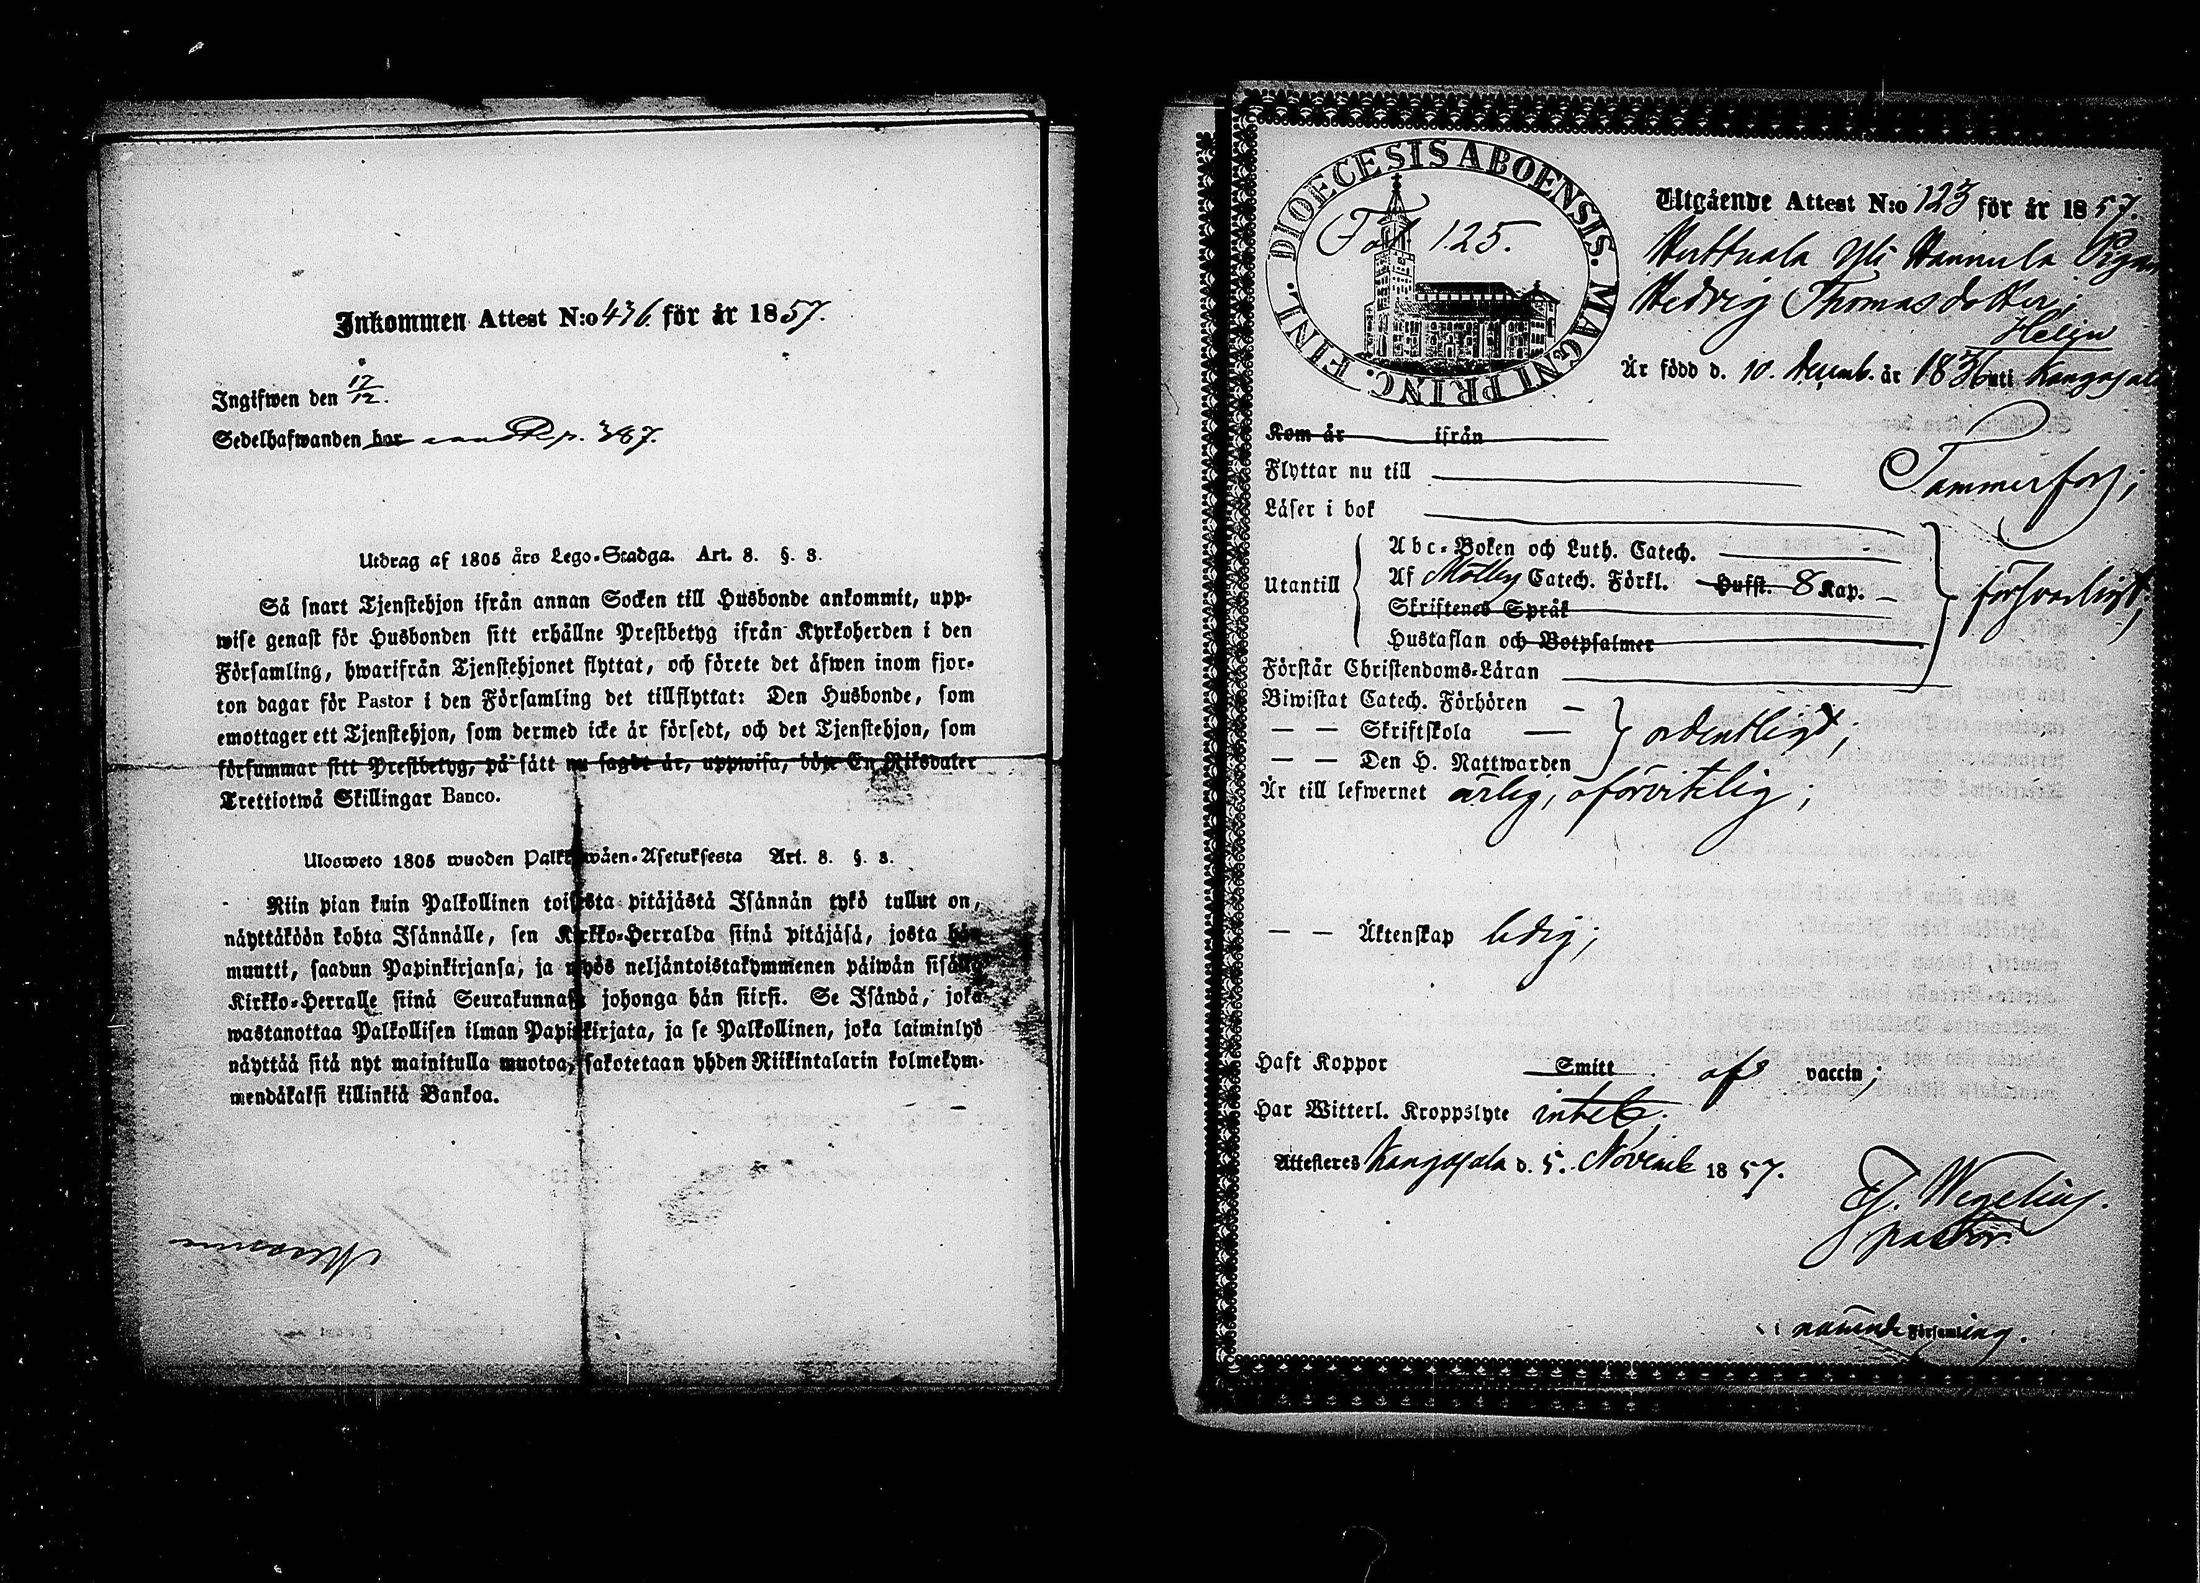 Inkommen Attest N:o 436 för år 1857.
Ingifwen den 17/12.
Sedelhafwanden bor p. 387.
Utdrag af 1805 års Lego-Stadga. Art. 8. §. 3.
Så snart Tjenstehjon ifrån annan Socken till Husbonde ankommit, upp-
wise genast för Husbonden sitt erhållne Prestbetyg ifrån Kyrkoherden i den
Församling, hwarifrån Tjenstehjonet flyttat, och förete det äfwen inom fjor-
ton dagar för Pastor i den Församling det tillflyttat: Den Husbonde, som
emottager ett Tjenstehjon, som dermed icke är försedt, och det Tjenstehjon, som
försummar sitt Prestbetyg, på sätt nu sagdt är, uppwisa, böte En Riksdaler
Trettiotwå Skillingar Banco.
Ulosweto 1805 wuoden Palkkawäen-Asetuksesta Art. 8. §. 3.
Niin pian kuin Palkollinen toisesta pitäjästä Isännän tykö tullut on,
näyttäköön kohta Isännälle, sen Kirkko-Herralda siinä pitäjäsä, josta hän
muutti, saadun Papinkirjansa, ja myös neljäntoistakymmenen päiwän sisällä
Kirkko-Herralle siinä Seurakunnasa johonga hän siirsi. Se Isändä, joka
wastanottaa Palkollisen ilman Papinkirjata, ja se Palkollinen, joka laiminlyö
näyttää sitä nyt mainitulla muotoa, sakotetaan yhden Riikintalarin kolmekym-
mendäkaksi killinkiä Bankoa.
DIOECESIS ABOENSIS. MAGNI PRINC. FINL.
Fol 125.
Utgående Attest N:o 123 för år 1857.
Huttuala Yli Hannula Pigan
Hedvig Thomasdotter;
Helin
Är född d. 10. Decemb. år 1836 uti Kangasala
Kom år ifrån
Flyttar nu till Tammerfors;
Läser i bok
Utantill
Abc-Boken och Luth. Catech.
Af Möllers Catech. Förkl. Hufst. 8 Kap.
Skriftenes Språk
Hustaflan och Botpsalmer
försvarligt;
Förstår Christendoms-Läran
Biwistat Catech. Förhören
— — Skriftskola
— — Den H. Nattwarden
ordentligt;
Är till lefwernet ärlig, oförvitelig;
— — Äktenskap ledig;
Haft Koppor Smitt afs vaccin;
Har Witterl. Kroppslyte intet;
Attesteras Kangasala d. 5. Novemb 1857.
Wegelius.
pastor
Församling.